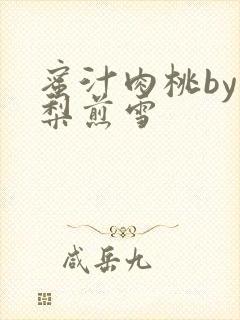 蜜汁肉桃by
梨煎雪
咸岳九